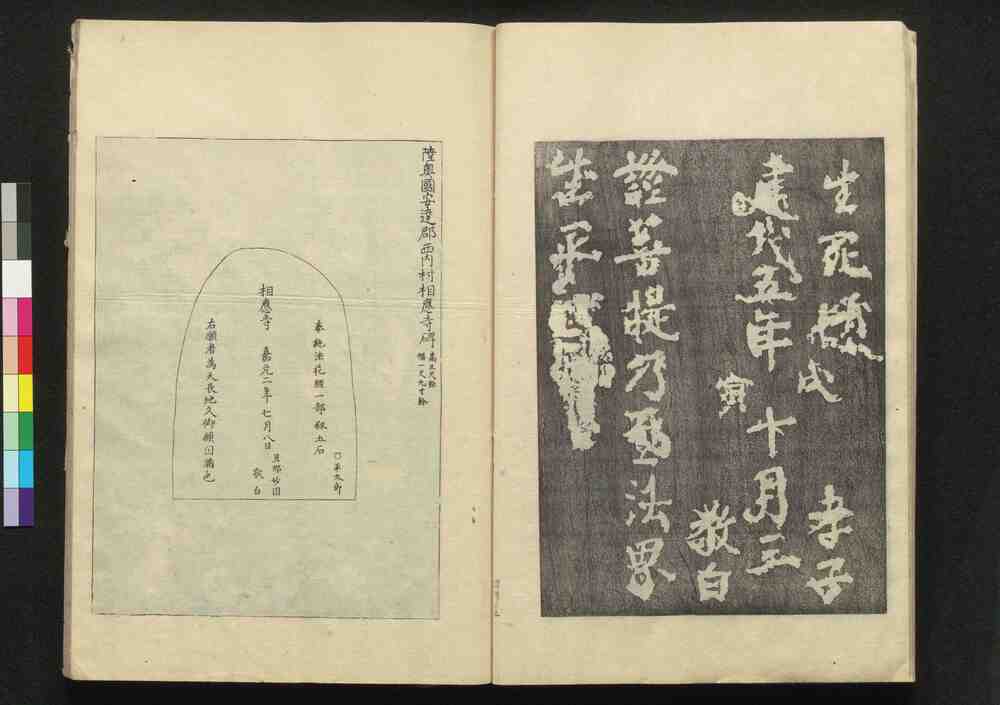 生死
孝子
戊
建武五年
十月三
寅
敬白
證菩提乃至法界
平
陸奥國安達郡西内村相應寺碑
高五尺餘
幅一尺九寸餘
○平太郎
奉施法花經一部籾五石
相應寺 嘉元二年七月八日
旦那妙円
敬白
右願者為天長地久御願円滿也